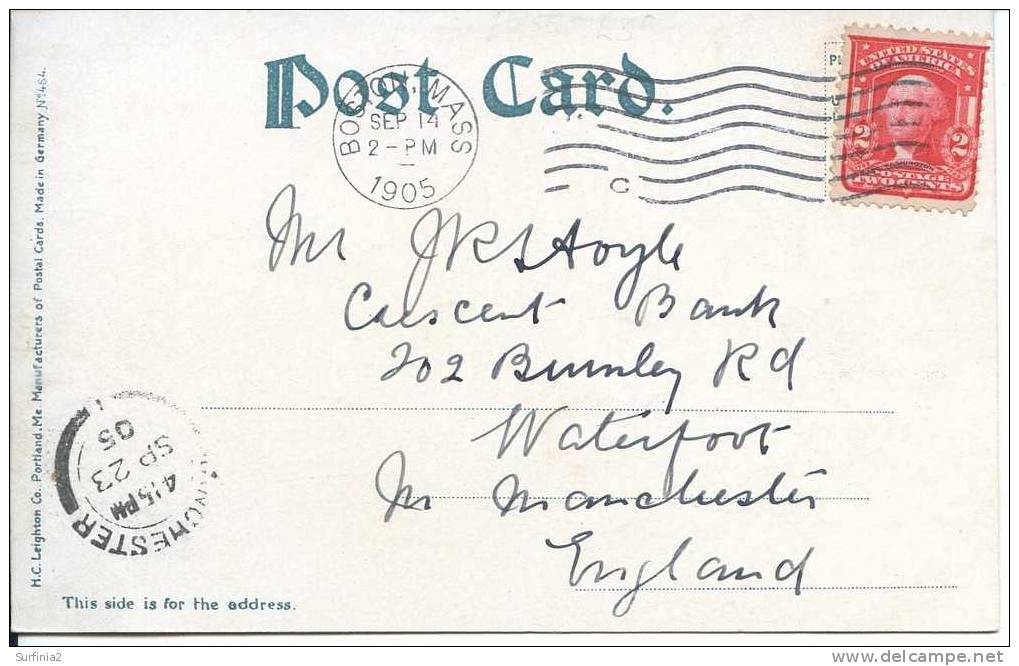 Post Card.
BOSTON, MASS
SEP 14
2-PM
1905
C
UNITED STATES
OF AMERICA
2 2
WASHINGTON
POSTAGE
TWO CENTS
Mr J R S Hoyle
Crescent Bank
202 Burnley Rd
Waterfoot
Nr Manchester
England
MANCHESTER
4.15 PM
SP 23
05
H.C. Leighton Co. Portland. Me. Manufacturers of Postal Cards. Made in Germany No 464.
This side is for the address.
Surfinia2